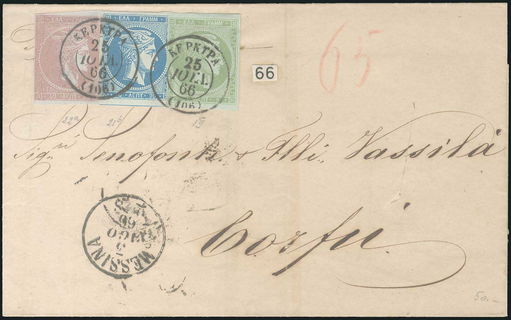 ΕΛΛ. ΓΡΑΜΜ.
ΕΛΛ. ΓΡΑΜΜ.
ΕΛΛ. ΓΡΑΜΜ.
ΚΕΡΚΥΡΑ
25
ΙΟΥΛ.
66
(106)
ΚΕΡΚΥΡΑ
25
ΙΟΥΛ.
66
(106)
65
66
Sigri Senofonte Flli Vassilà
Corfù
MESSINA
50.-